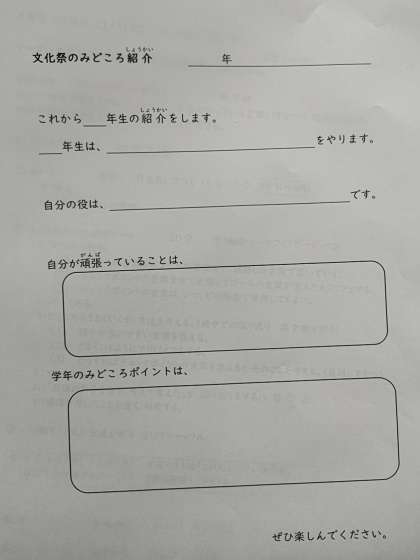 文化祭のみどころ紹介 ＿＿＿年＿＿＿＿＿＿＿＿
これから＿＿年生の紹介をします。
＿＿年生は、＿＿＿＿＿＿＿＿＿＿＿＿＿＿＿＿をやります。
自分の役は、＿＿＿＿＿＿＿＿＿＿＿＿＿＿＿＿＿＿です。
自分が頑張っていることは、
学年のみどころポイントは、
ぜひ楽しんでください。